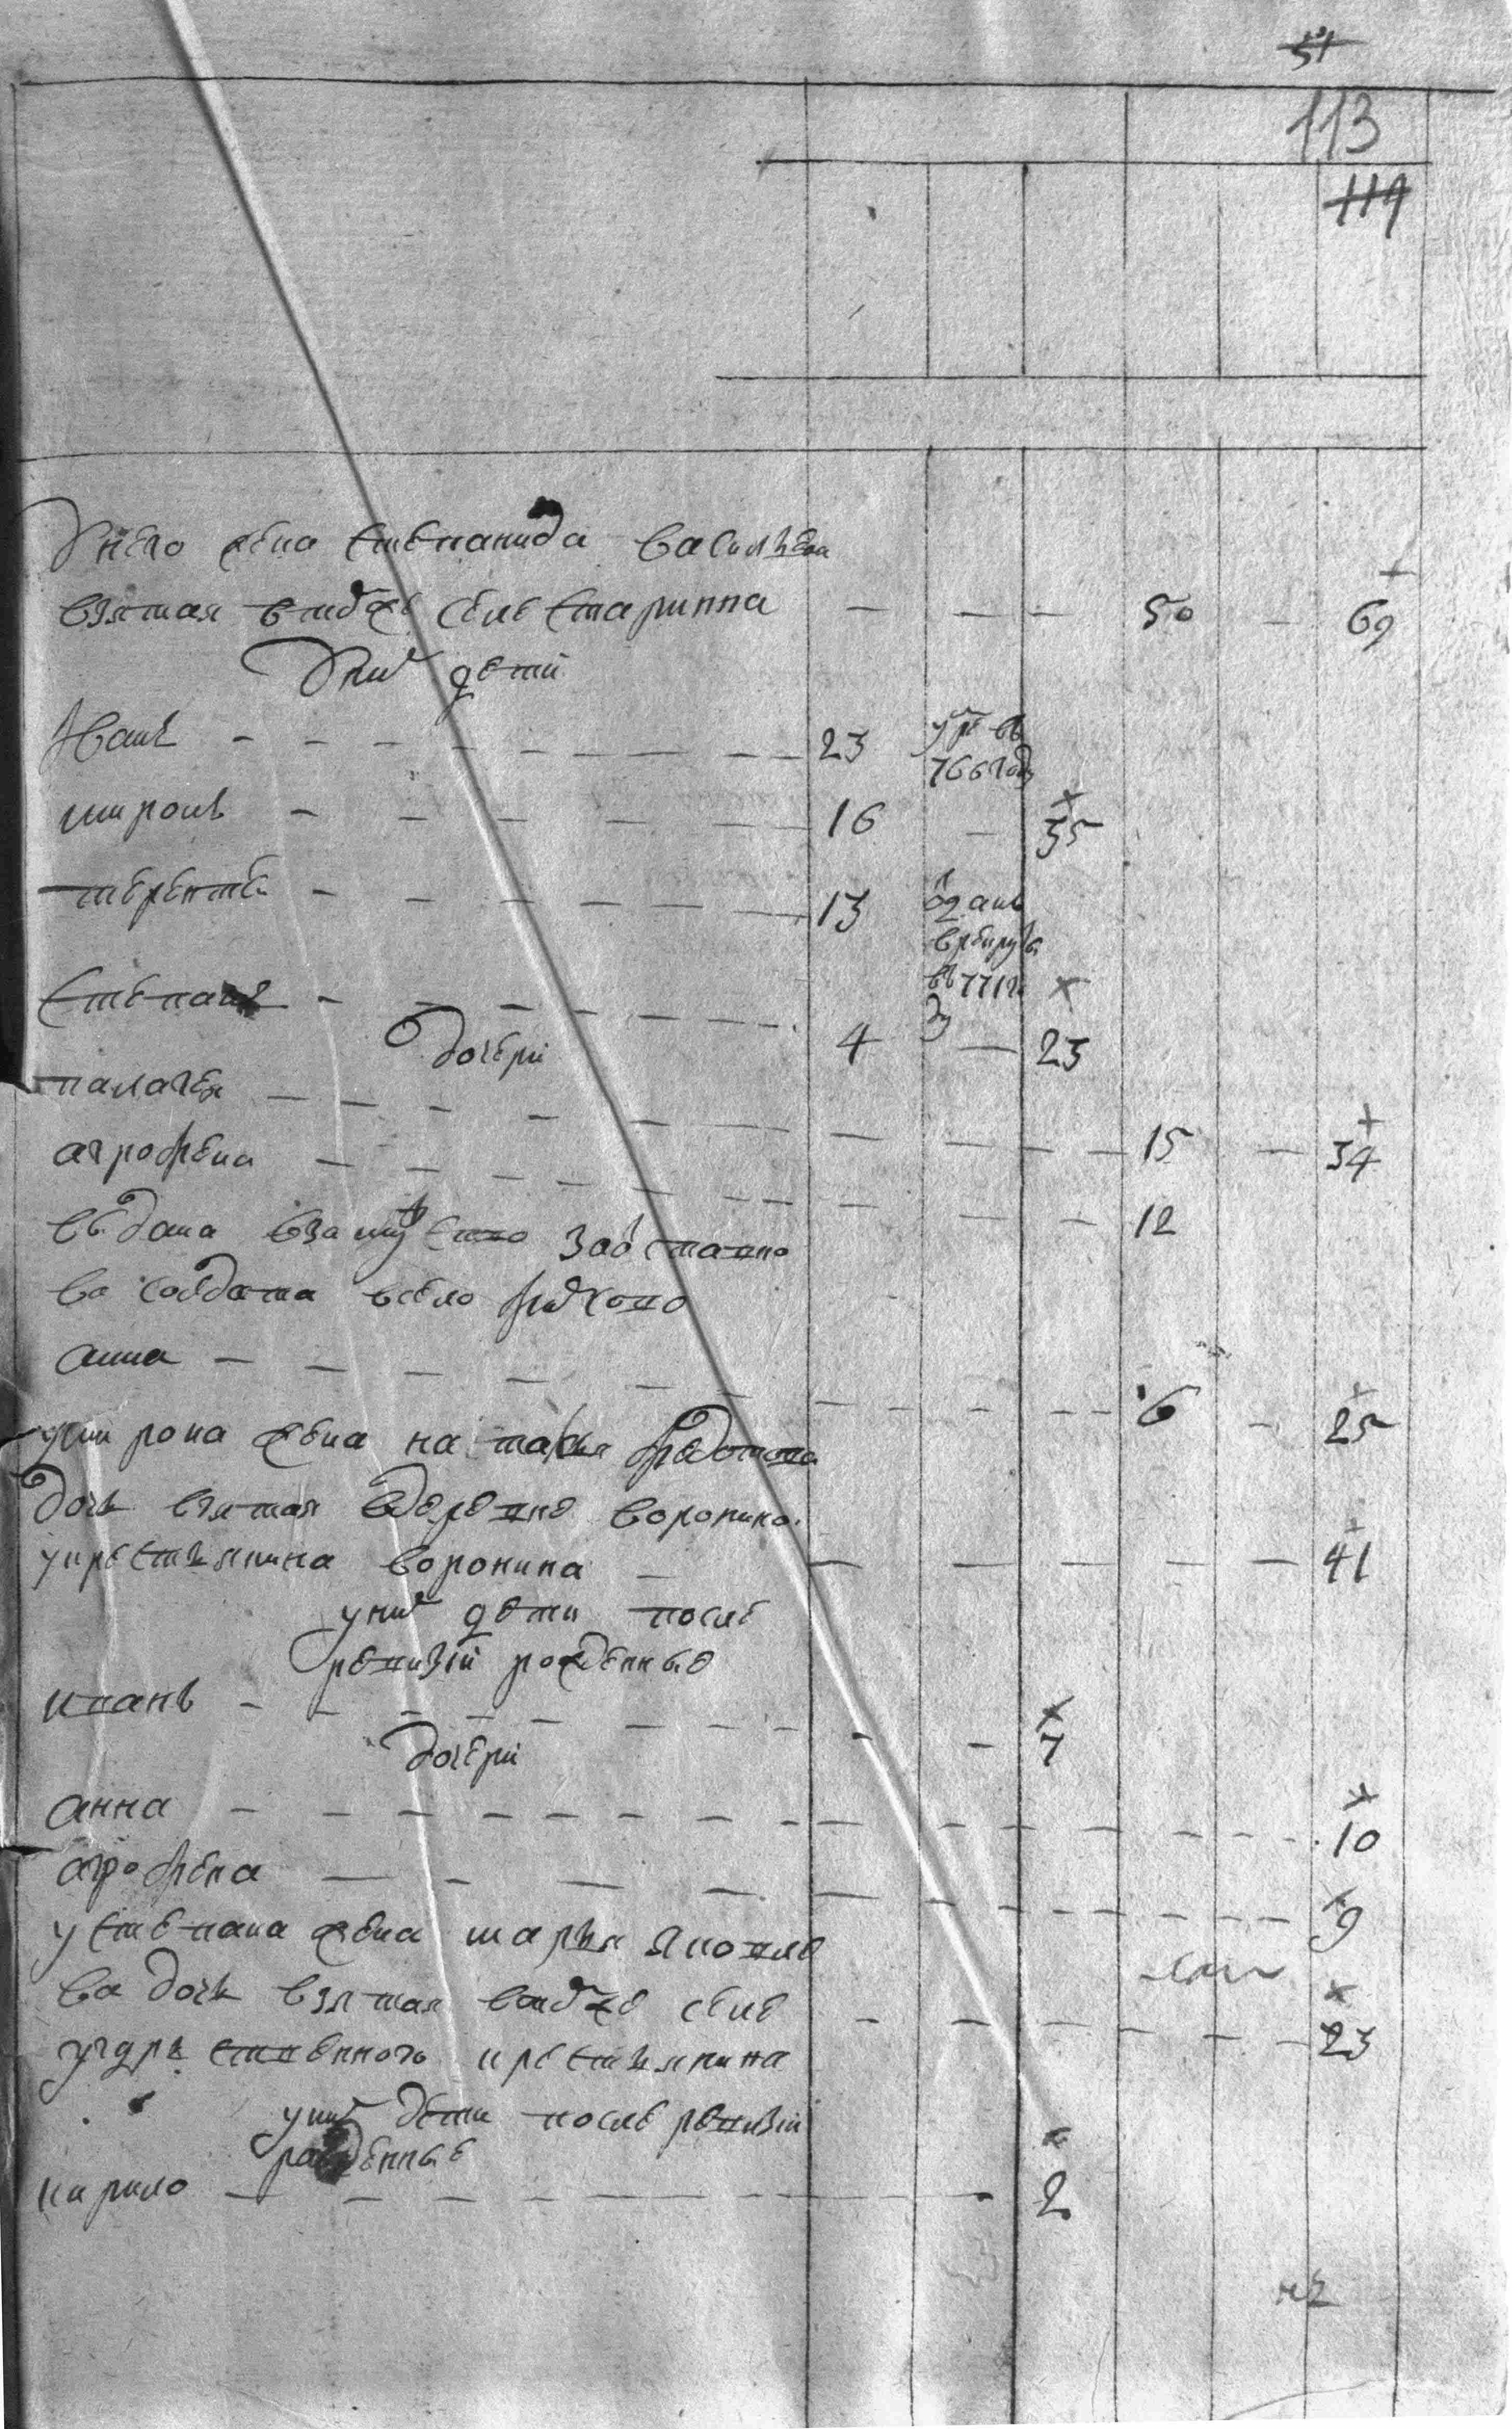 51
113
119
У него жена степанида васильева
взятая втидже селе старинна — — — 50 — 69
У них дети
Иванъ — 23 умре въ
766 году
миронъ — 16 — 35
терентей — 13 отданъ
врекруты
въ 771 го
ду
степанъ — 4 — 23
дочери
палагея — 15 — 34
агрофена — 12
выдана взамужство
за солдата всело
анна — 6 — 25
умирона жена наталья федотова
дочь взятая вдеревне воронино
укрестьянина воронина — 41
уних дети после
ревизiи рожденные
иванъ — 7
дочери
анна — 10
агрофена — 9
устепана жена марья яковле
ва дочь взятая втидже селе
угдрственного крестьянина — 23
уних дети после ревизiи
рожденные
кирило — 2